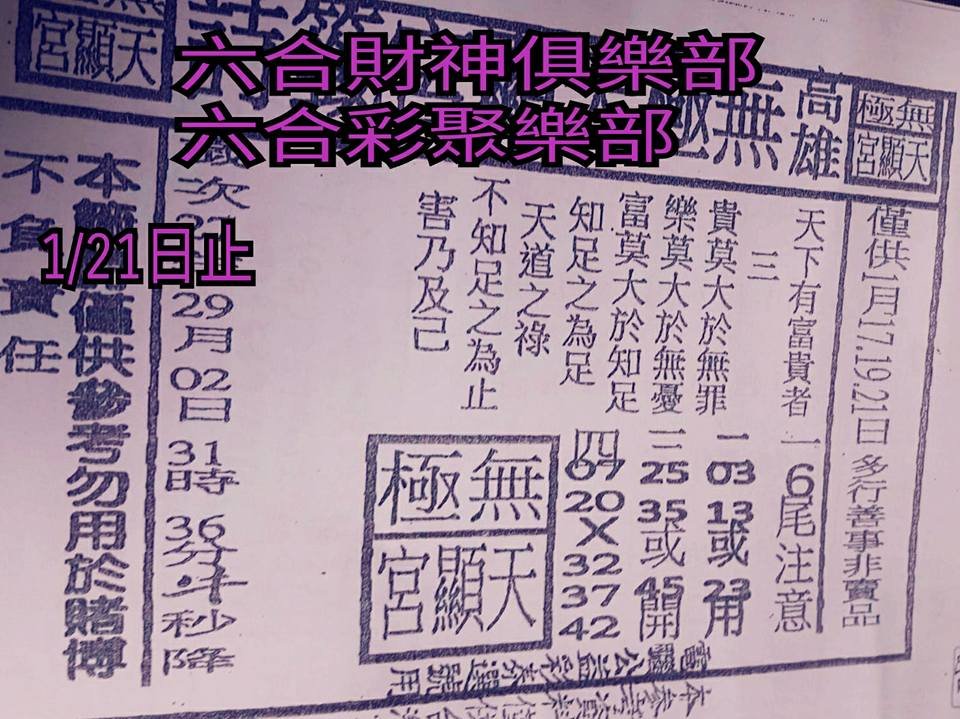 六合財神俱樂部
六合彩聚樂部
1/21日止
無極
天顯宮
高雄
無極
天顯宮
僅供1月17.19.21日 多行善事非賣品
天下有富貴者
三
貴莫大於無罪
樂莫大於無憂
富莫大於知足
知足之為足
天道之祿
不知足之為止
害乃及己
一6尾注意
二03 13或23用
三25 35或45開
四07 20 X 32 37 42
無極
天顯宮
次
29月02日31時36分斗秒降
本
僅供參考勿用於賭博
不負責任